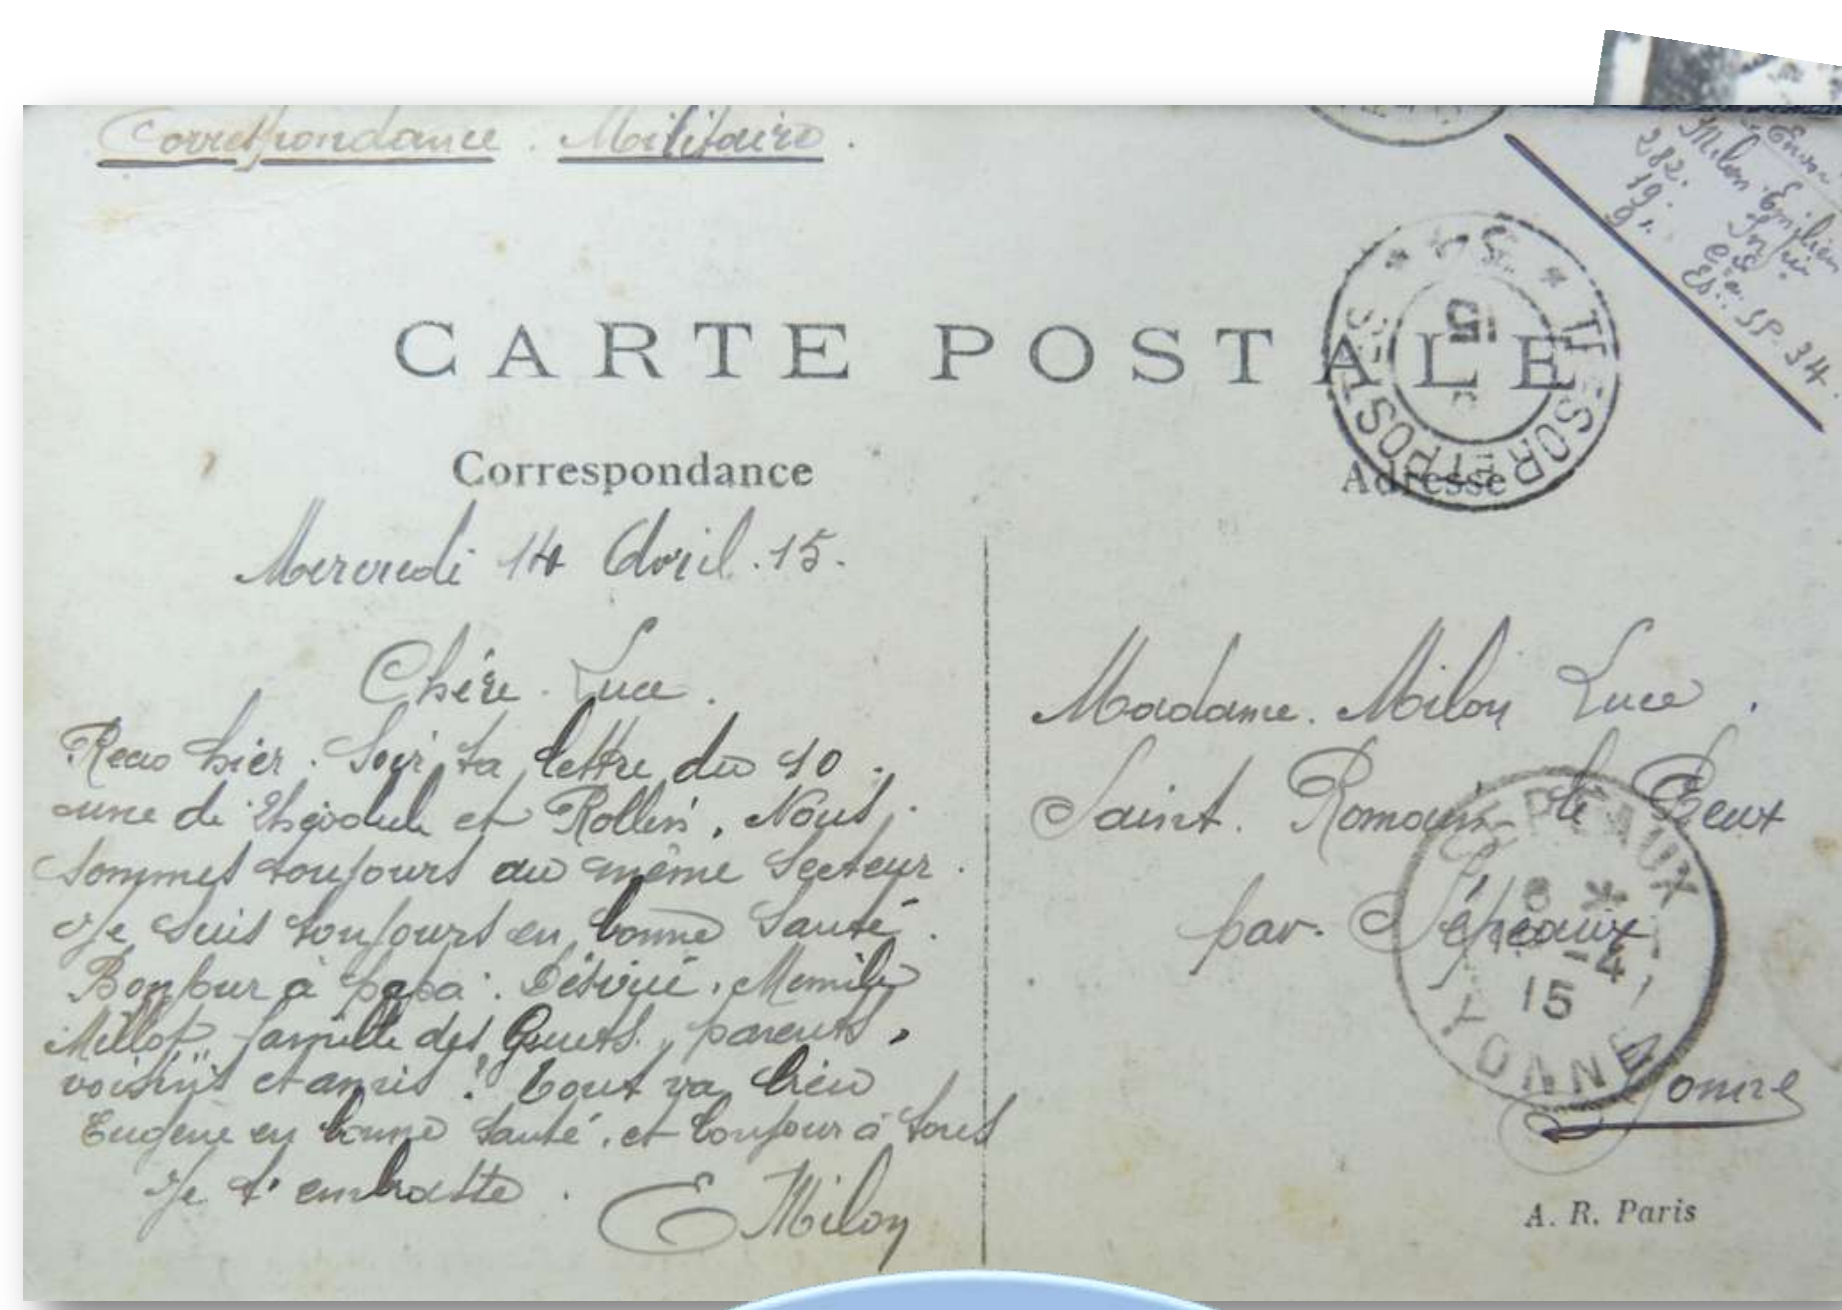 Correspondance . Militaire .
Milon Emilien
282. Inf
19. Cie
Es. SP. 34.
CARTE POSTALE
TRESOR ET POSTES
* 34 *
15
Correspondance
Adresse
Mercredi 14 Avril . 15.
Chère . Luce .
Recu hier . Soir ta lettre du 10 .
une de Théodule et Rollin . Nous .
sommes toujours au même Secteur .
Je suis toujours en bonne Santé .
Bonjour à papa . Désiré .
Millot famille des parents ,
voisins et amis ! Tout va bien
Eugène en bonne Santé . et bonjour à tous
Je t'embrasse .
E Milon
Madame . Milon Luce .
Saint . Romain le Preux
par . Sépeaux
Yonne
SEPEAUX
8 *
-4
15
YONNE
A. R. Paris